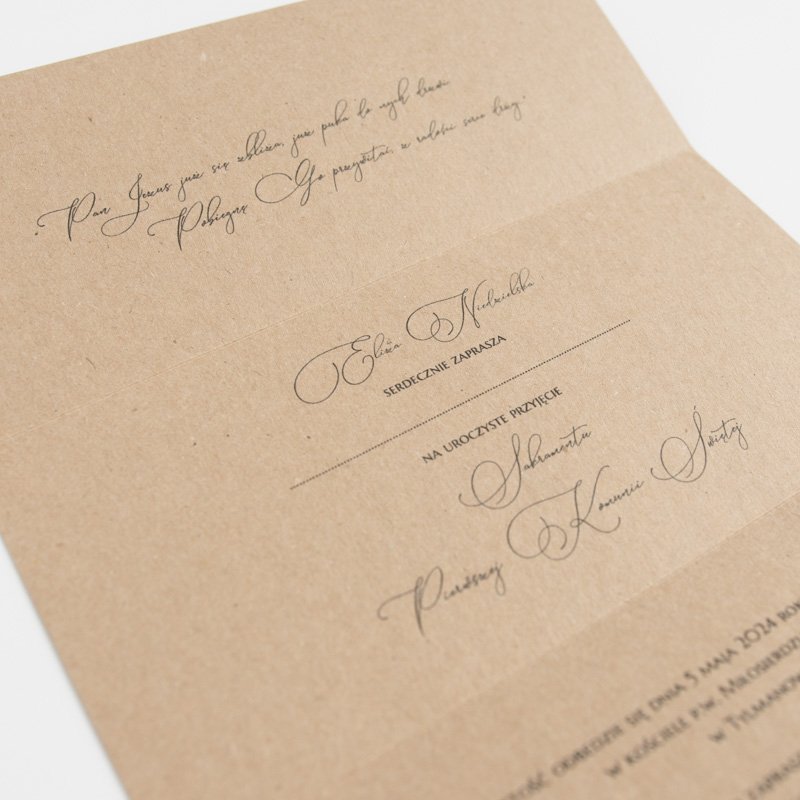 "Pan Jezus już się zbliża, już puka do mych drzwi
Pobiegnę Go przywitać, z radości serce drży"
Eliza Niedzielska
SERDECZNIE ZAPRASZA
NA UROCZYSTE PRZYJĘCIE
Sakramentu
Pierwszej Komunii Świętej
ODBĘDZIE SIĘ DNIA 5 MAJA 2024 ROKU
W KOŚCIELE P.W. MIŁOSIERDZI
W TYLMANOW